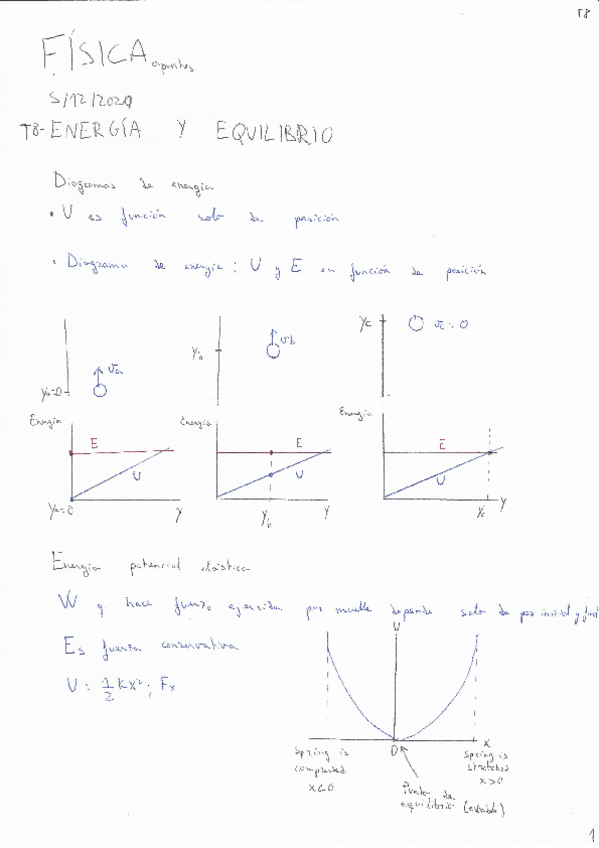 T8
FÍSICA apuntes
5/12/2020
T8-ENERGÍA Y EQUILIBRIO
Diagramas de energía
• U es función solo de posición
• Diagrama de energía: U y E en función de posición
yc
vc = 0
yb
vb
ya=0
va
Energía
Energía
Energía
E
E
E
U
U
U
ya=0
y
yb
y
yc
y
Energía potencial elástica
W q. hace fuerza ejercida por muelle depende solo de pos inicial y final
Es fuerza conservativa
U = 1/2 Kx²; Fx
U
0
x
Spring is compressed x<0
Spring is stretched x>0
Punto de equilibrio (estable)
1